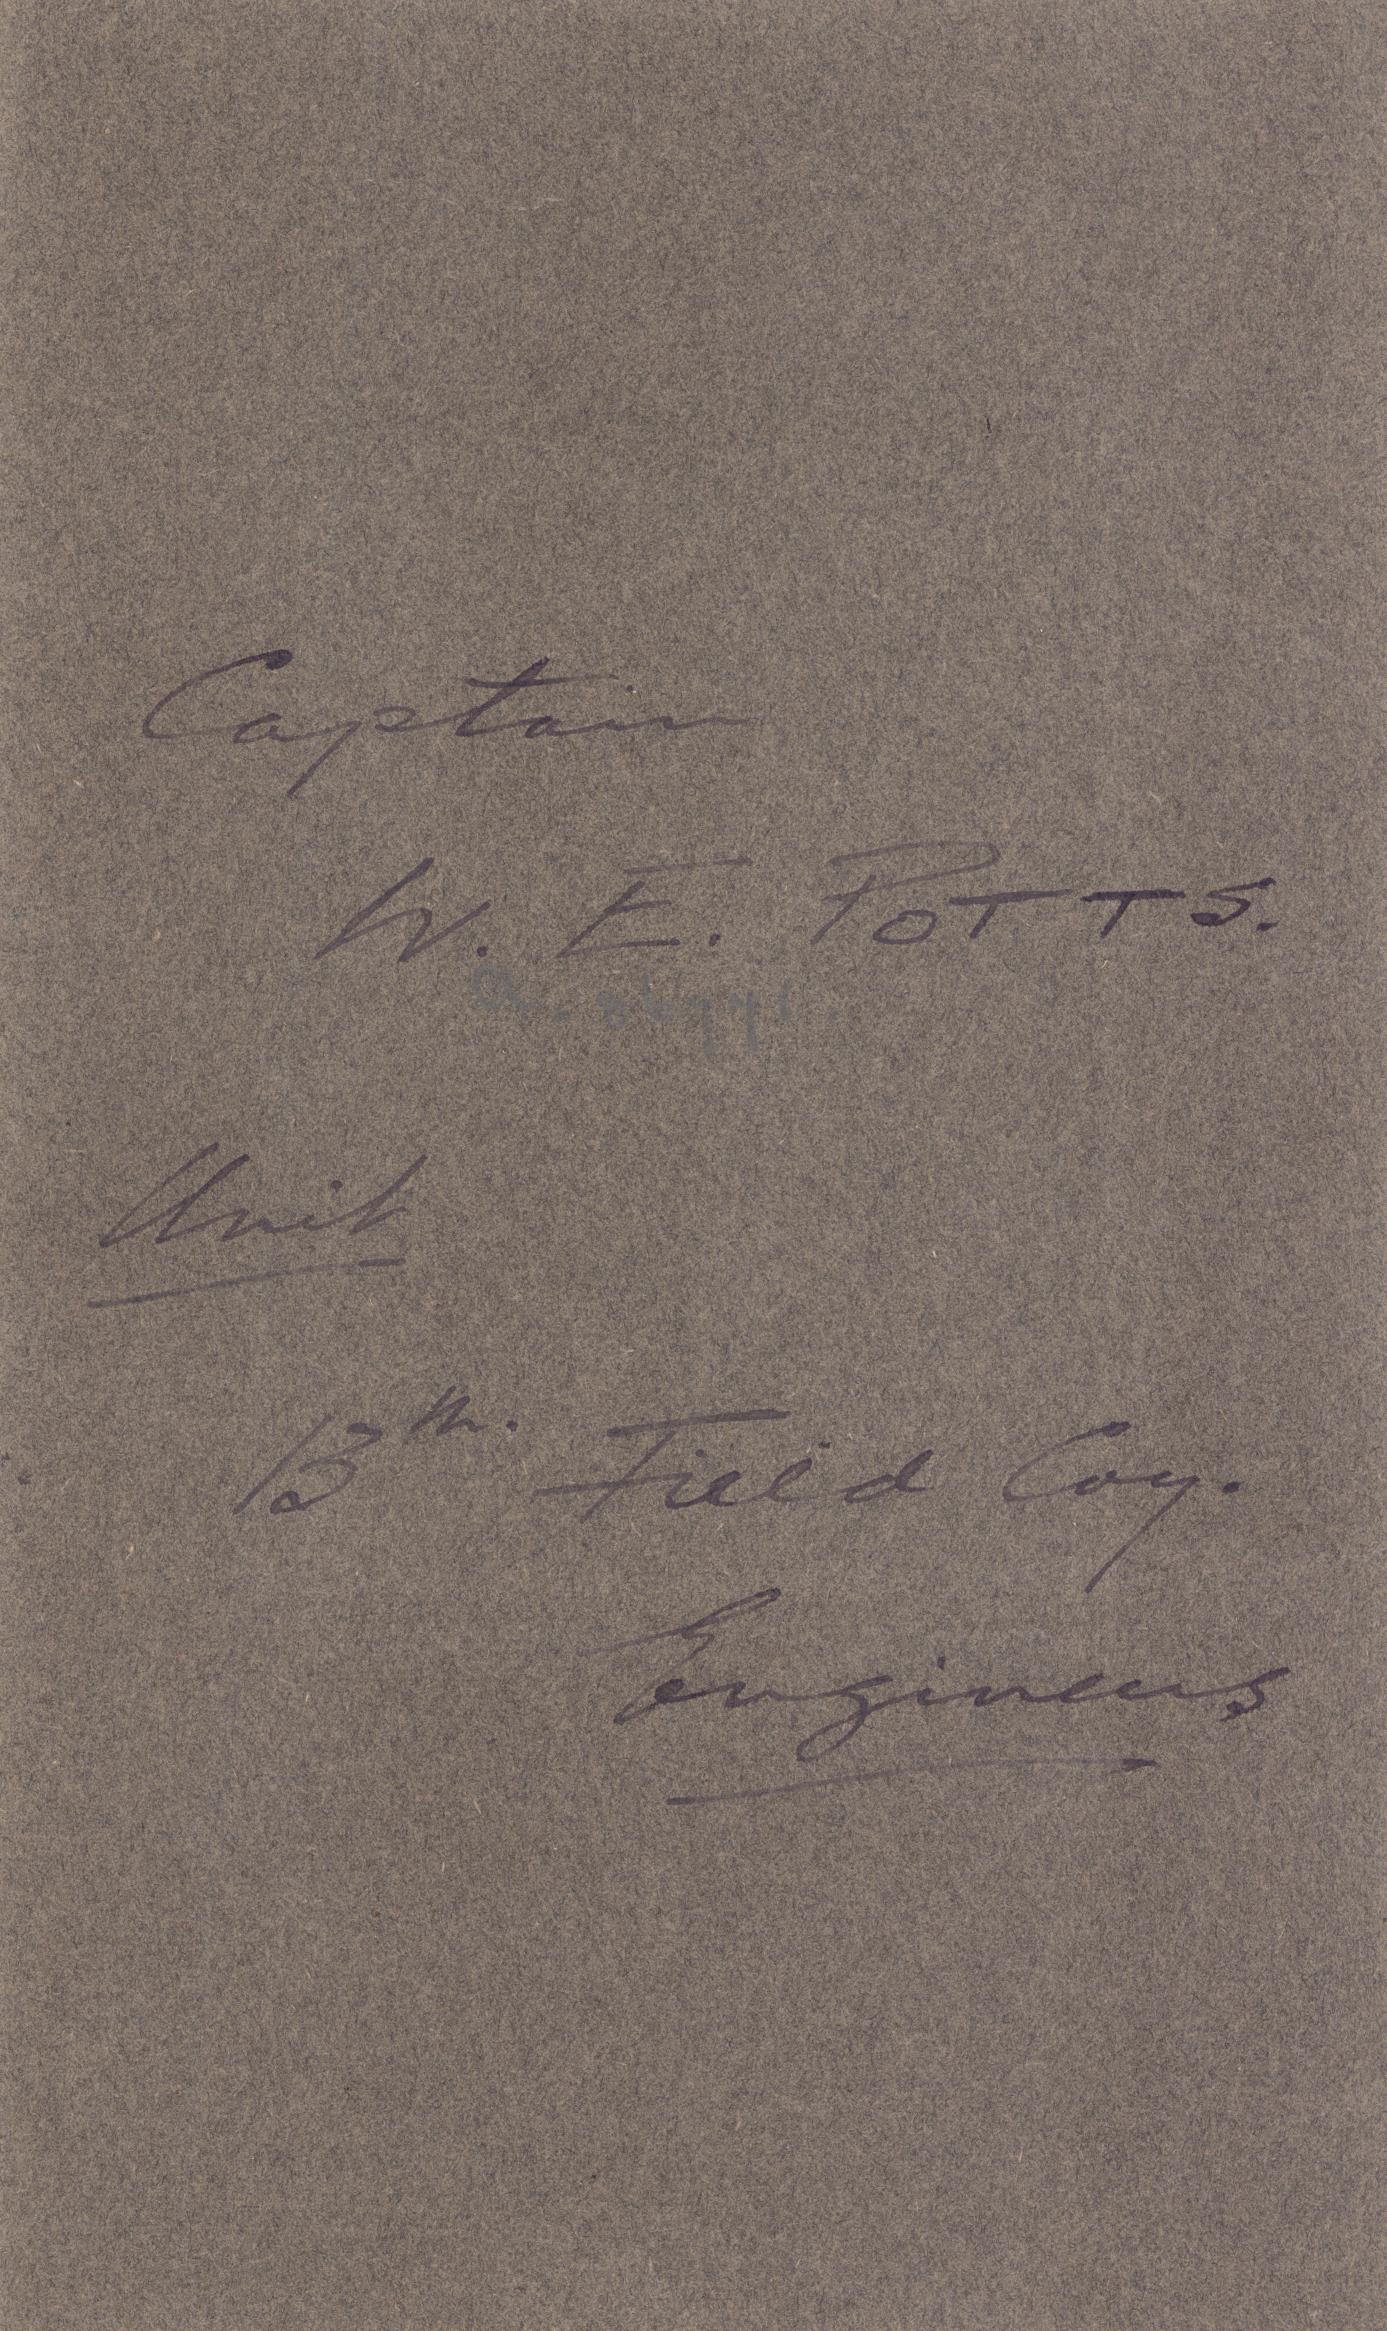 Captain
W. E. POTTS.
Unit
13th. Field Coy.
Engineers